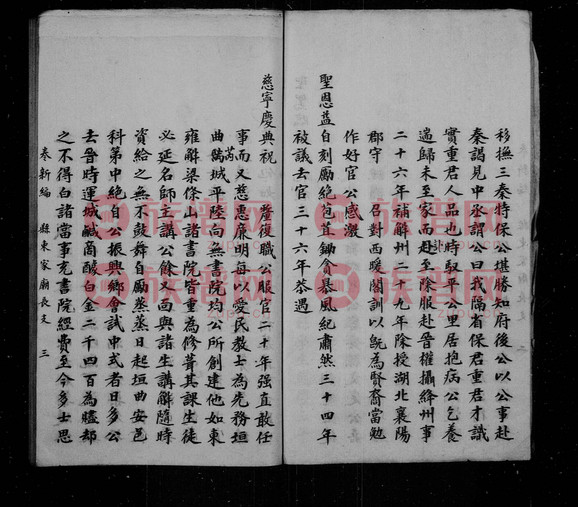 移撫三秦特保公堪勝知府後公以公事赴
秦謁見中丞謂公曰我隔省保君重君才識
實重君人品也時馭平公里居抱病公乞養
遄歸未至家而赴至除服赴晉權攝絳州事
二十六年補解州二十九年除授湖北襄陽
郡守 召對西暖閣訓以旣為賢裔當勉
作好官公感激
聖恩益自刻勵絶包苴鋤貪暴風紀肅然三十四年
被議去官三十六年恭遇
慈寧慶典祝 釐復職公服官二十年强直敢任
事而又慈惠廉明每以愛民教士為先務垣
曲芮城平陸向無書院均公所創建他如東
雍解梁條山諸書院皆重為修葺其課生徒
必延名師主講公餘又面與諸生講解隨時
資給之無不鼓舞自勵蒸蒸日起垣曲安邑
科第中絶自公振興鄉會試中式者日多公
去晉時運城鹺商醵白金二千四百為贐却
之不得白諸當事充書院經費至今多士思
奉新編 縣東家廟長支 三
族普网
族普网
族普网
族普网